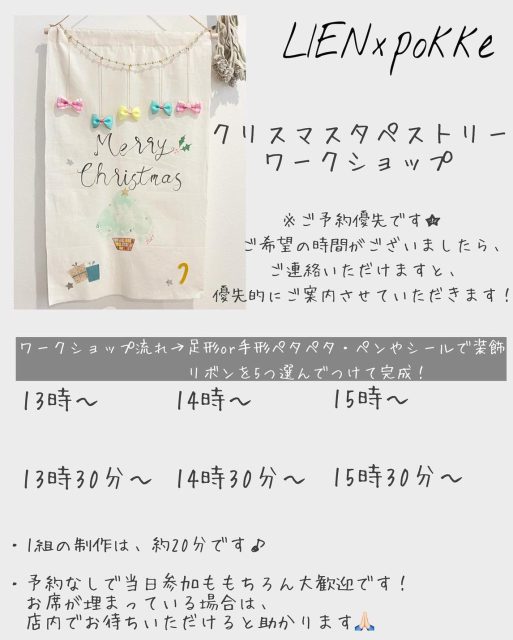 LIEN×pokke
Merry
Christmas
クリスマスタペストリー
ワークショップ
※ご予約優先です★
ご希望の時間がございましたら、
ご連絡いただけますと、
優先的にご案内させていただきます！
ワークショップ流れ→足形or手形ペタペタ・ペンやシールで装飾
リボンを5つ選んでつけて完成！
13時～ 14時～ 15時～
13時30分～ 14時30分～ 15時30分～
・1組の制作は、約20分です♪
・予約なしで当日参加ももちろん大歓迎です！
お席が埋まっている場合は、
店内でお待ちいただけると助かります🙏🏻